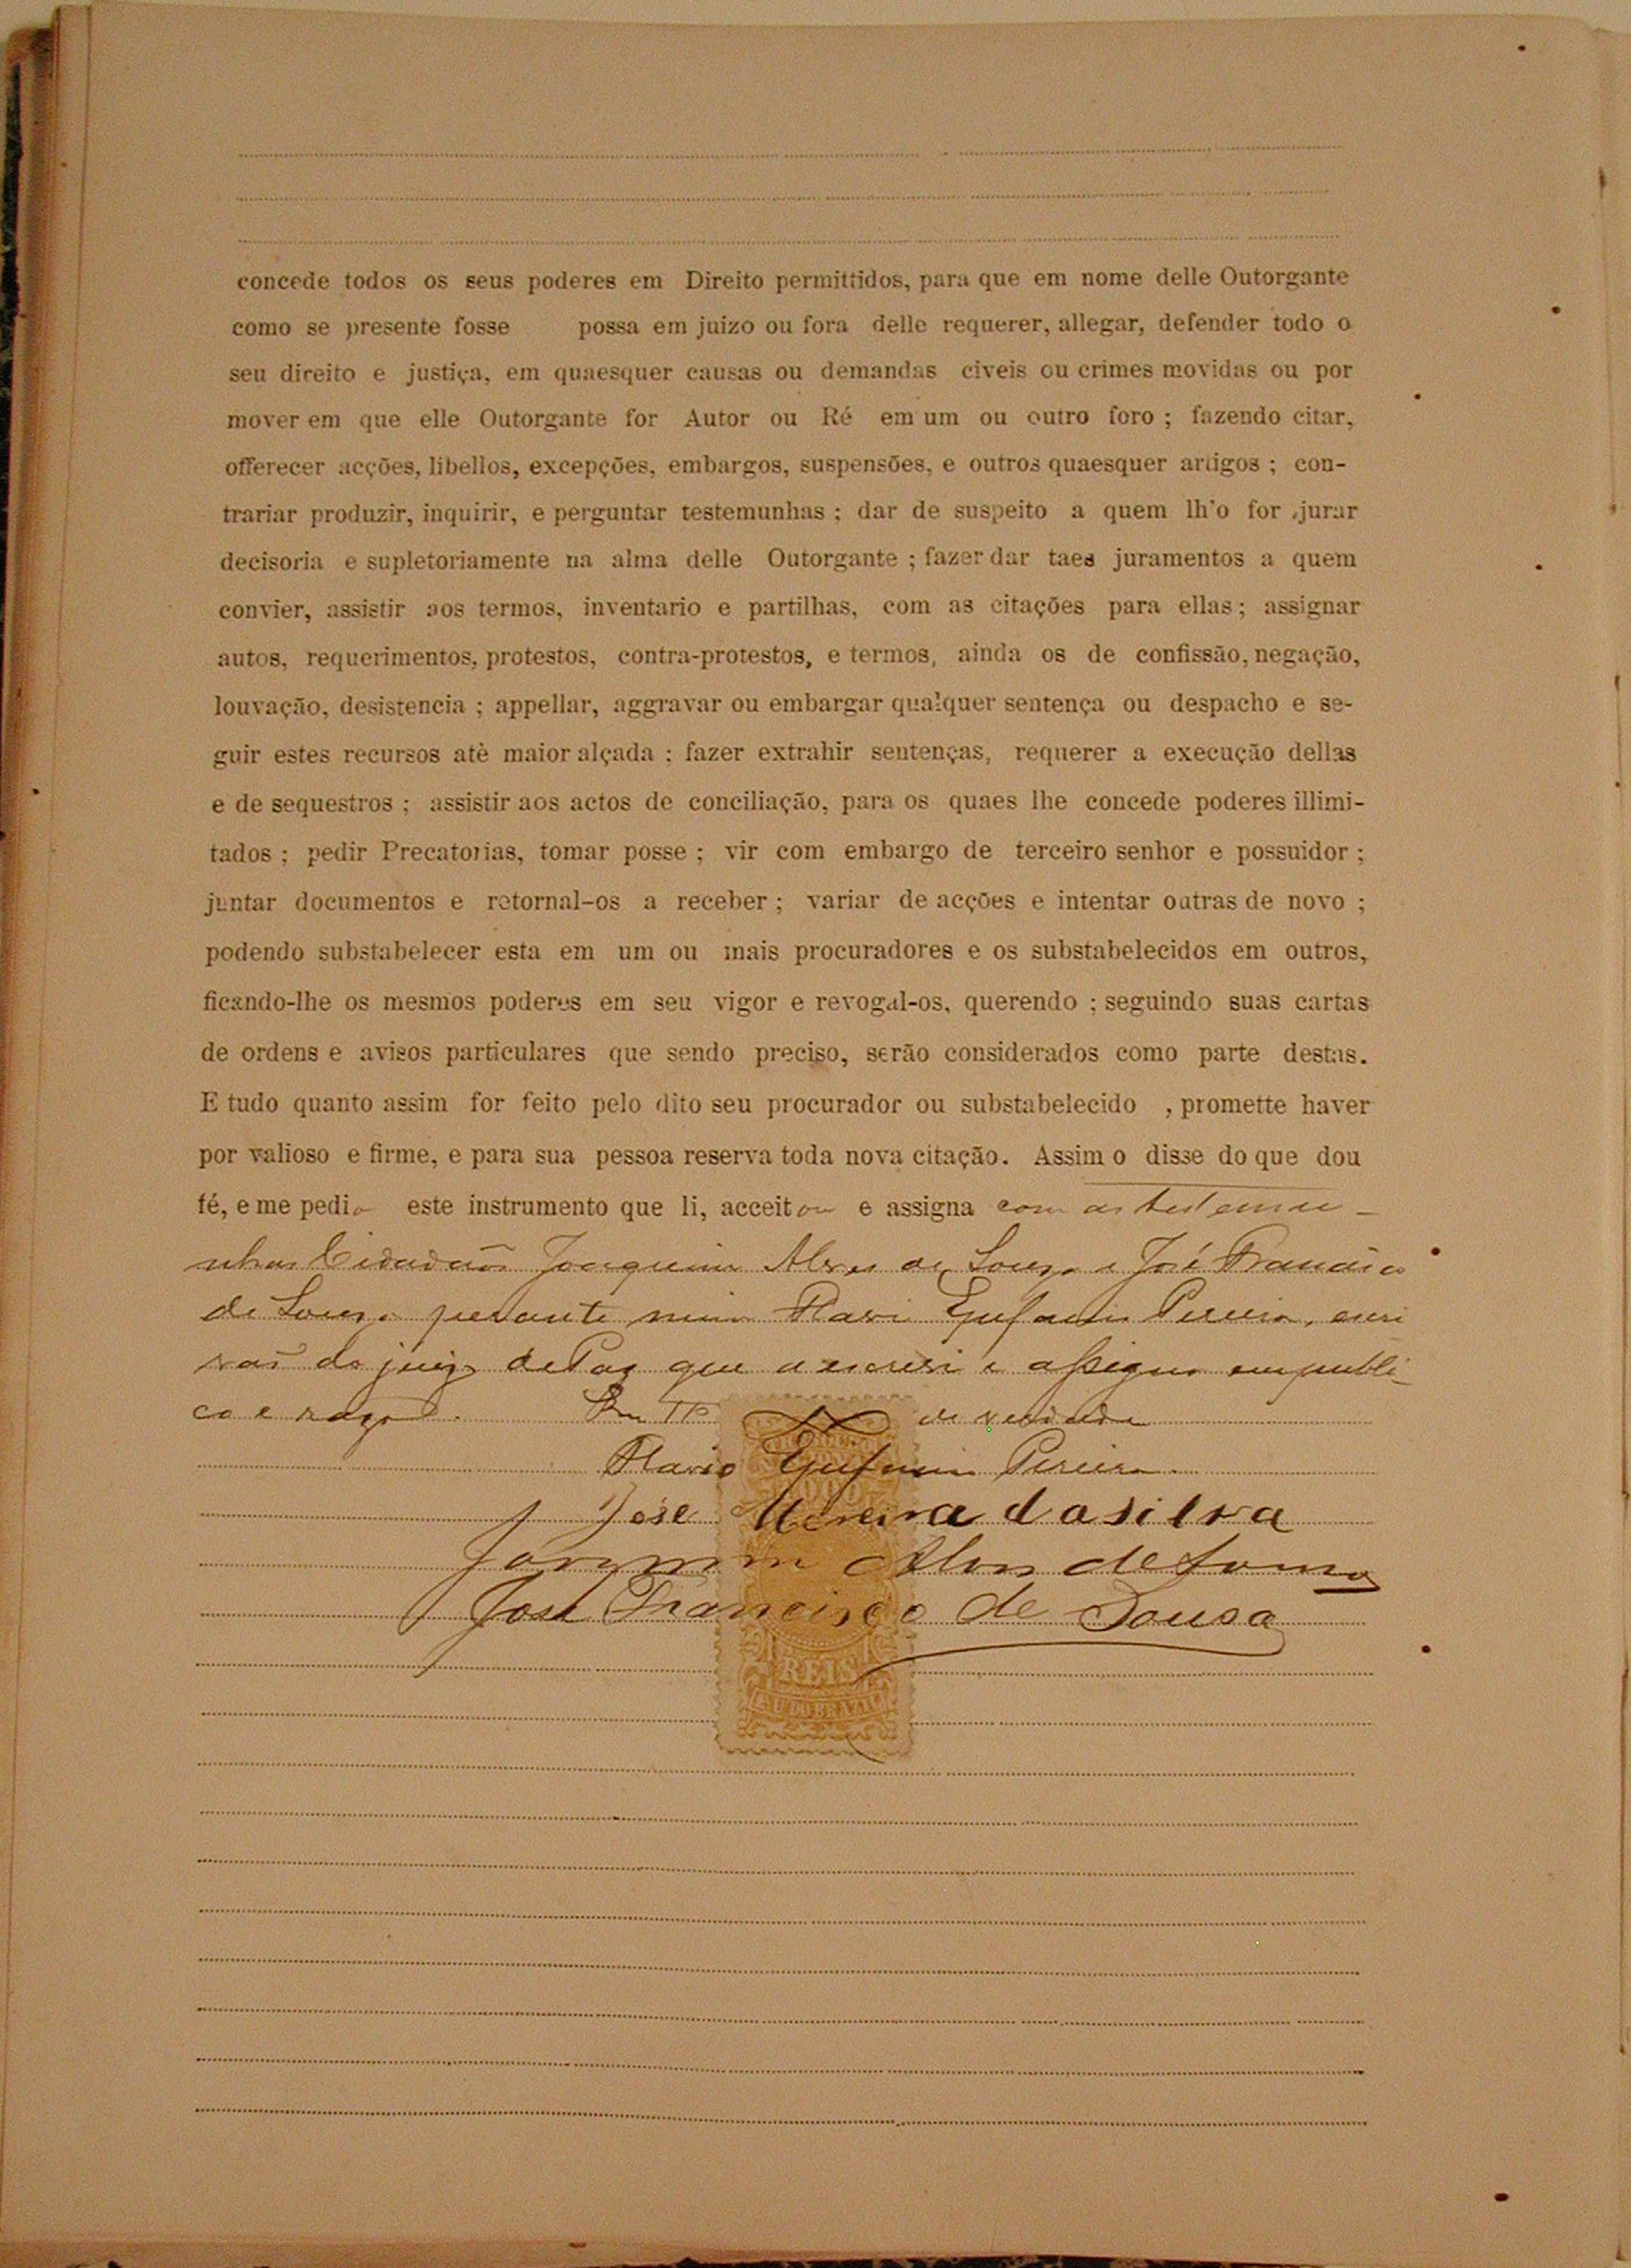 concede todos os seus poderes em Direito permittidos, para que em nome delle Outorgante
como se presente fosse possa em juizo ou fora delle requerer, allegar, defender todo o
seu direito e justiça, em quaesquer causas ou demandas civeis ou crimes movidas ou por
mover em que elle Outorgante for Autor ou Ré em um ou outro foro ; fazendo citar,
offerecer acções, libellos, excepções, embargos, suspensões, e outros quaesquer artigos ; con-
trariar produzir, inquirir, e perguntar testemunhas ; dar de suspeito a quem lh'o for ,jurar
decisoria e supletoriamente na alma delle Outorgante ; fazer dar taes juramentos a quem
convier, assistir aos termos, inventario e partilhas, com as citações para ellas ; assignar
autos, requerimentos, protestos, contra-protestos, e termos, ainda os de confissão, negação,
louvação, desistencia ; appellar, aggravar ou embargar qualquer sentença ou despacho e se-
guir estes recursos atè maior alçada ; fazer extrahir sentenças, requerer a execução dellas
e de sequestros ; assistir aos actos de conciliação, para os quaes lhe concede poderes illimi-
tados ; pedir Precatorias, tomar posse ; vir com embargo de terceiro senhor e possuidor ;
juntar documentos e retornal-os a receber ; variar de acções e intentar outras de novo ;
podendo substabelecer esta em um ou mais procuradores e os substabelecidos em outros,
ficando-lhe os mesmos poderes em seu vigor e revogal-os, querendo ; seguindo suas cartas
de ordens e avisos particulares que sendo preciso, serão considerados como parte destas.
E tudo quanto assim for feito pelo dito seu procurador ou substabelecido , promette haver
por valioso e firme, e para sua pessoa reserva toda nova citação. Assim o disse do que dou
fé, e me pedio este instrumento que li, acceitou e assigna com as testemu-
nhas Cidadãos Joaquim Alves de Souza e José Francisco
de Souza perante mim Mario Pereira, escri
vão do juiz de Paz que a escrevi e assigno em publi
co e razo. Em de verdade
Mario Pereira
José Moreira da silva
Joaquim Alves de Souza
José Francisco de Sousa
REIS